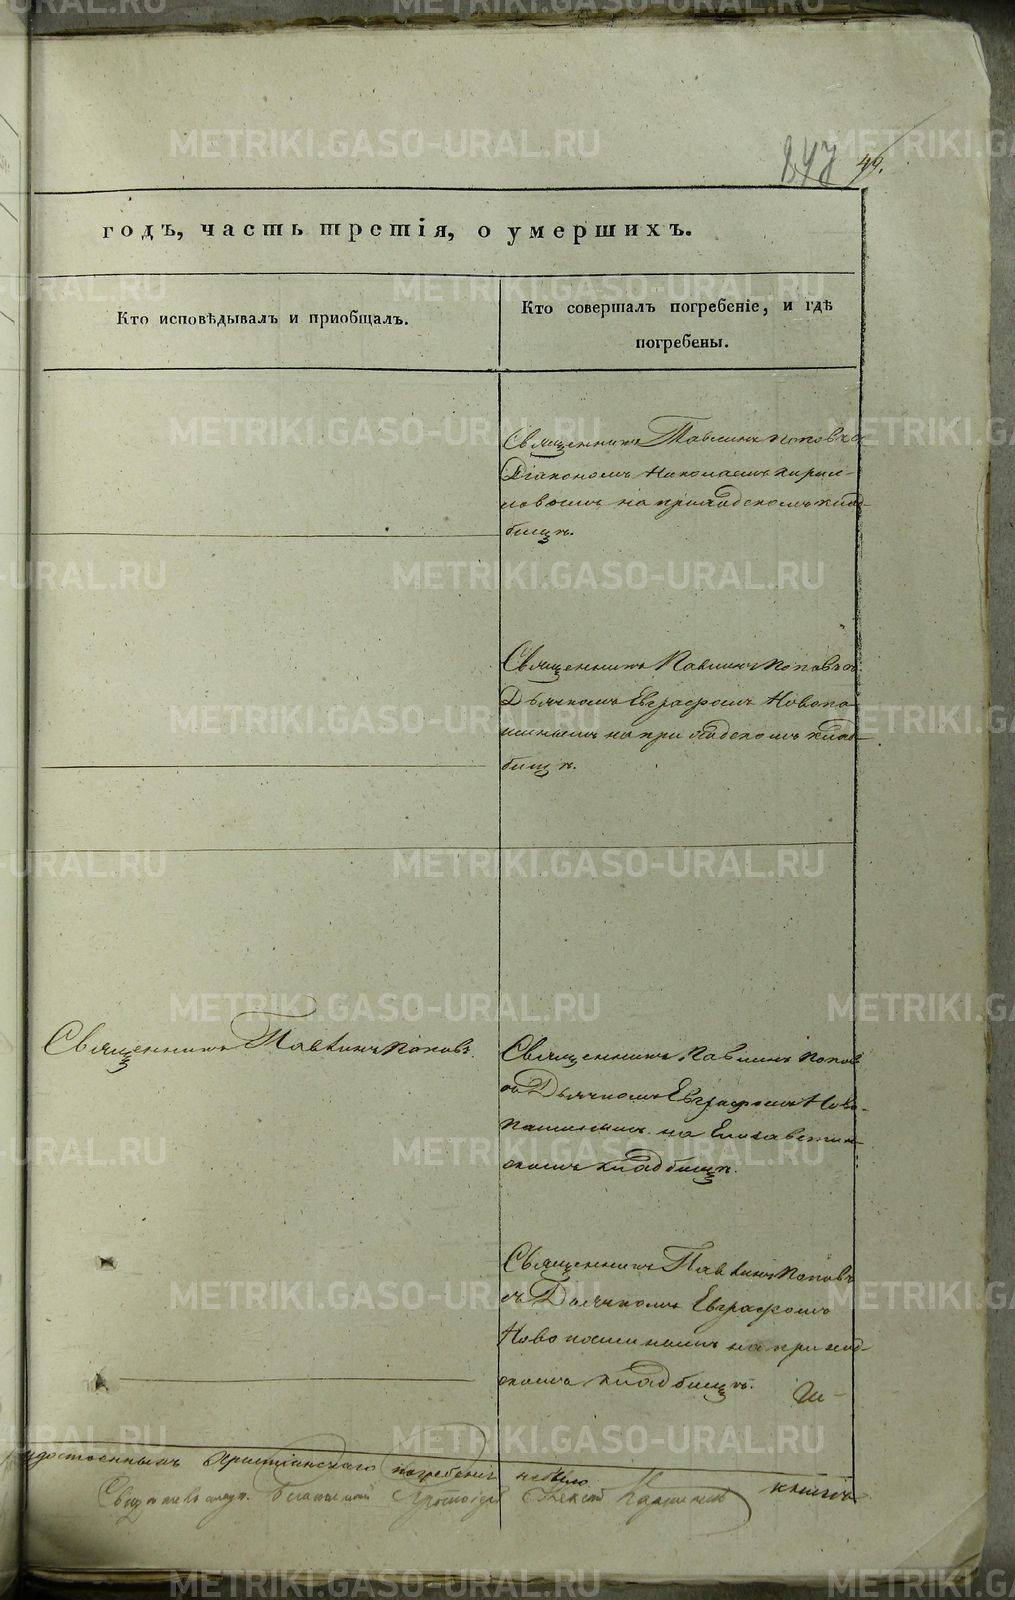 247 44.
годъ, часть третія, о умершихъ.
Кто исповѣдывалъ и приобщалъ.
Кто совершалъ погребеніе, и гдѣ
погребены.
Священникъ Павлинъ Поповъ съ
Діакономъ Николаемъ Кирил-
ловымъ на приходскомъ клад-
бищѣ.
Священникъ Павлинъ Поповъ съ
Дьячкомъ Евграфомъ Новопа-
шинымъ на приходскомъ клад-
бищѣ.
Священникъ Павлинъ Поповъ.
Священникъ Павлинъ Поповъ
съ Дьячкомъ Евграфомъ Ново-
пашинымъ на Елисаветин-
скомъ кладбищѣ.
Священникъ Павлинъ Поповъ
съ Дьячкомъ Евграфомъ
Новопашинымъ на приход-
скомъ кладбищѣ.
удостоенныхъ христіанскаго погребенія небыло. книги
Свидѣтельствовалъ Благочинный Протоіерей Алексій
METRIKI.GASO-URAL.RU